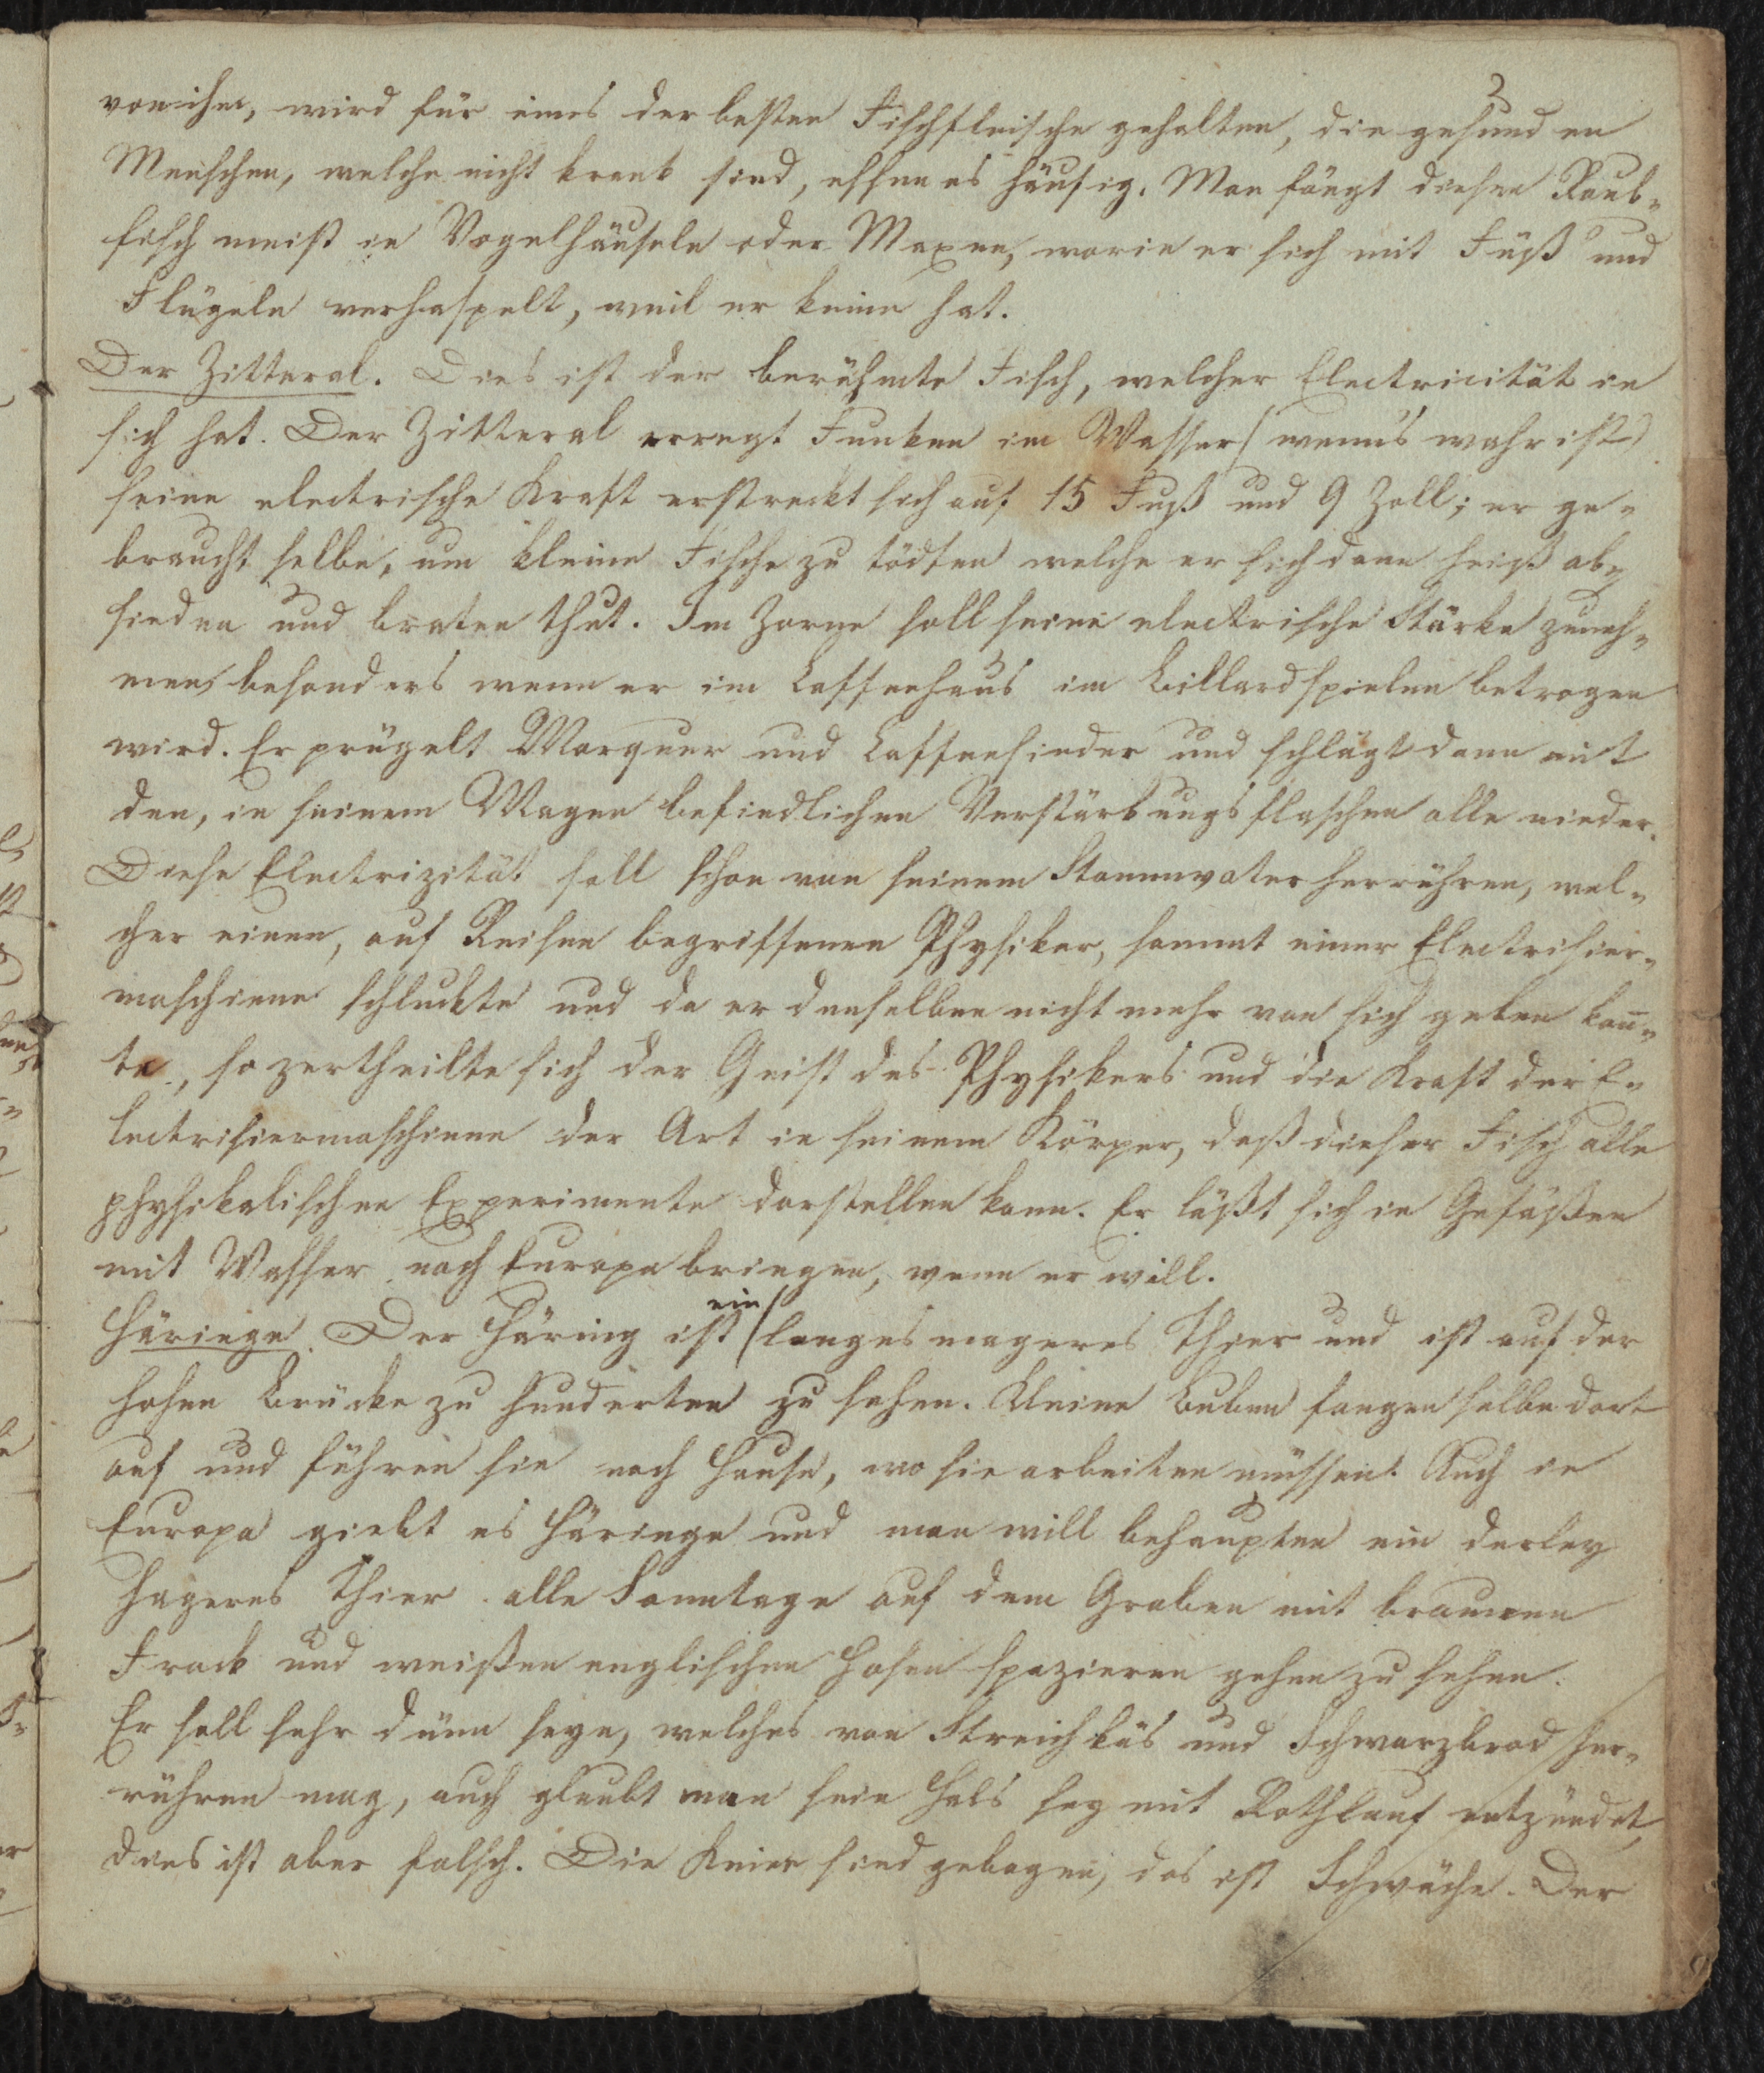 von ihm, wird für eines der besten Fischfleische gehalten, die gesunden
Menschen, welche nicht krank sind, essen es häufig. Man fängt diesen Raub-
fisch meist in Vogelhäuseln oder Maxen, worin er sich mit Füß und
Flügeln verhaspelt, weil er keine hat.
Der Zitteral. Dies ist der berühmte Fisch, welcher Electricität in
sich hat. Der Zitteral erregt Funken im Wasser (wenns wahr ist)
seine electrische Kraft erstreckt sich auf 15 Fuß und 9 Zoll; er ge-
braucht selbe, um kleine Fische zu tödten welche er sich dann heiß ab-
sieden und braten thut. Im Zorne soll seine electrische Stärke zuneh-
men, besonders wenn er im Caffeehaus im Billardspielen betrogen
wird. Er prügelt Marquer und Caffeesieder und schlägt dann mit
den, in seinem Magen befindlichen Verstärkungsflaschen alle nieder.
Diese Electrizität soll schon von seinem Stammvater herrühren, wel-
cher einen, auf Reisen begriffenen Physiker, sammt einer Electrisier-
maschiene schluckte und da er denselben nicht mehr von sich geben kon̄-
te, so zertheilte sich der Geist des Physikers und die Kraft der E-
lectrisiermaschiene der Art in seinem Körper, daß dieser Fisch alle
physikalischen Experimente darstellen kann. Er läßt sich in Gefäßen
mit Wasser nach Europa bringen, wenn er will.
Häringe. Der Häring ist ein langes mageres Thier und ist auf der
hohen Brücke zu hunderten zu sehen. Kleine Buben fangen selbe dort
auf und führen sie nach Hause, wo sie arbeiten müssen. Auch in
Europa giebt es Häringe und man will behaupten ein derley
hageres Thier alle Sonntage auf dem Graben mit braunen
Frack und weißen englischen Hosen spazieren gehen zu sehen.
Er soll sehr dünn seyn, welches von Streichkäs und Schwarzbrod her-
rühren mag, auch glaubt man sein Hals sey mit Rothlauf entzündet,
dies ist aber falsch. Die Knien sind gebogen, das ist Schwäche. Der